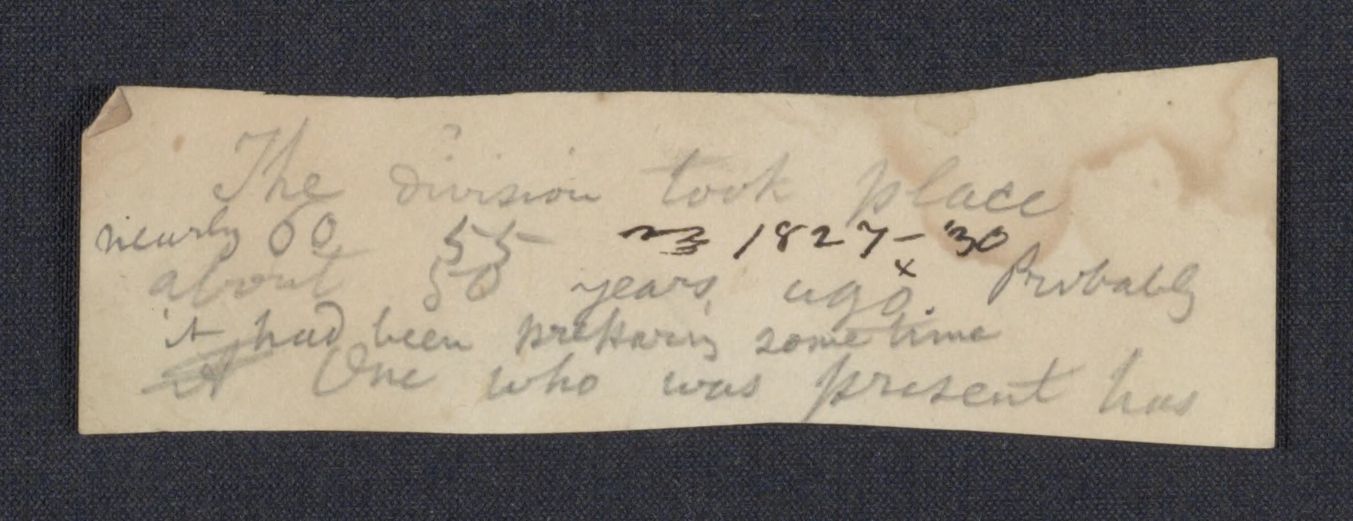 The division took place
nearly 60 55 1827-'30
about 50 years ago. x Probably
it had been preparing sometime
One who was present has